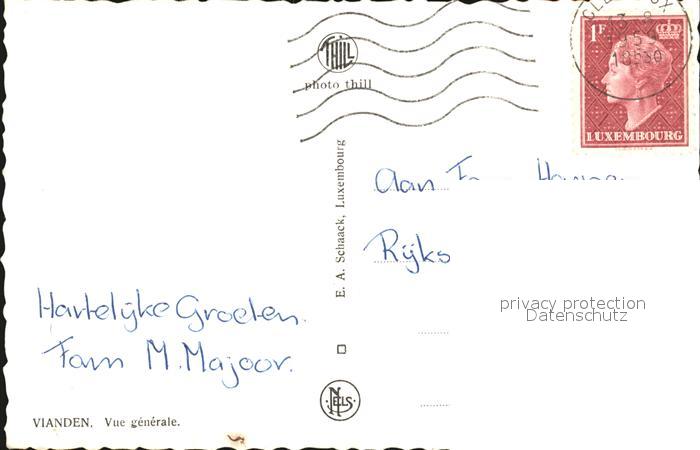 THILL
photo thill
1F
LUXEMBOURG
E. A. Schaack, Luxembourg
Aan
Rijks
privacy protection
Datenschutz
Hartelijke Groeten.
Fam M. Majoor.
NELS
VIANDEN. Vue générale.